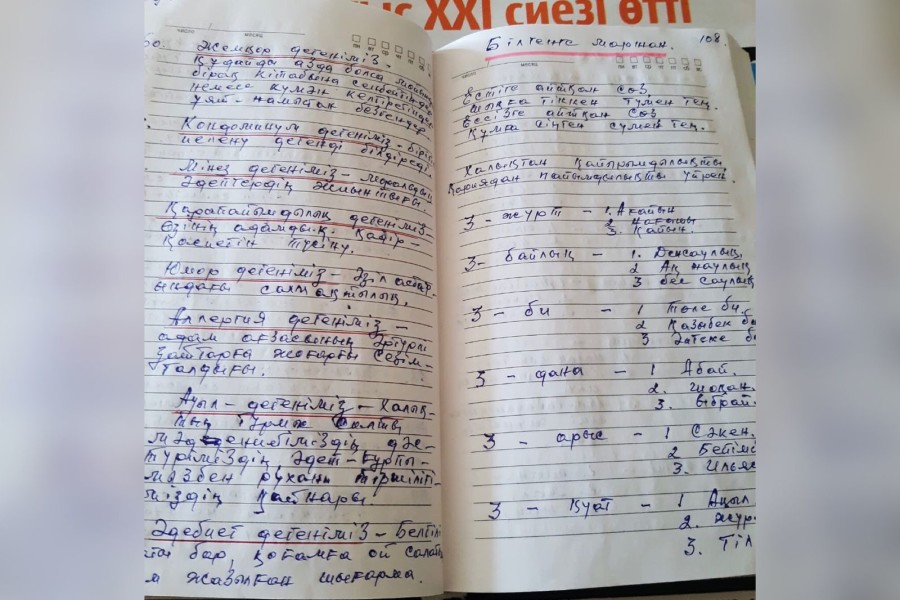 ХХІ сиезі өтті
Жемқор дегеніміз -
Құдайды азда болса мойын
бірақ кітабына сенбейтіндер
немесе күмән келтіретіндер
ұят-намыстан безгендер.
Кондоминиум дегеніміз - бірі
иелену дегенді білдіреді
Мінез дегеніміз - моральдық
әдеттердің жиынтығы.
Қарапайымдылық дегеніміз
өзінің адамдық қадір-
қасиетін түсіну.
Юмор дегеніміз - Әзіл астар
ындағы салмақтылық.
Аллергия дегеніміз -
адам ағзасының әртүрлі
заттарға жоғарғы сезім-
талдығы.
Ауыл - дегеніміз - Халық-
тың тұрмыс салты,
мәдениетіміздің дәс-
түріміздің әдет-ғұрпы-
мызбен рухани тіршілігі-
міздің қайнары.
Әдебиет дегеніміз - Белгілі
аты бар, қоғамға ой салаты
м жазылған шығарма.
Білгенге маржан. 108.
Естіге айтқан сөз
шыңға тіккен тумен тең.
Ессізге айтқан сөз
Құмға сіңген сумен тең.
Халықтан қайырымдылықты
Қариядан пайымдылықты үйрен.
3 - жұрт - 1. Ағайын
2 Нағашы
3. Қайын.
3 - байлық - 1. Денсаулық
2 Ақ жаулық
3 бес саулық
3 - би - 1 Төле би.
2 Қазыбек б
3 Әйтеке б
3 - дана - 1 Абай.
2. Шоқан.
3. Ыбрай.
3 - арыс - 1 Сәкен.
2 Бейімб
3. Ильяс
3 - қуат - 1 Ақыл
2. Жүр
3. Тіл